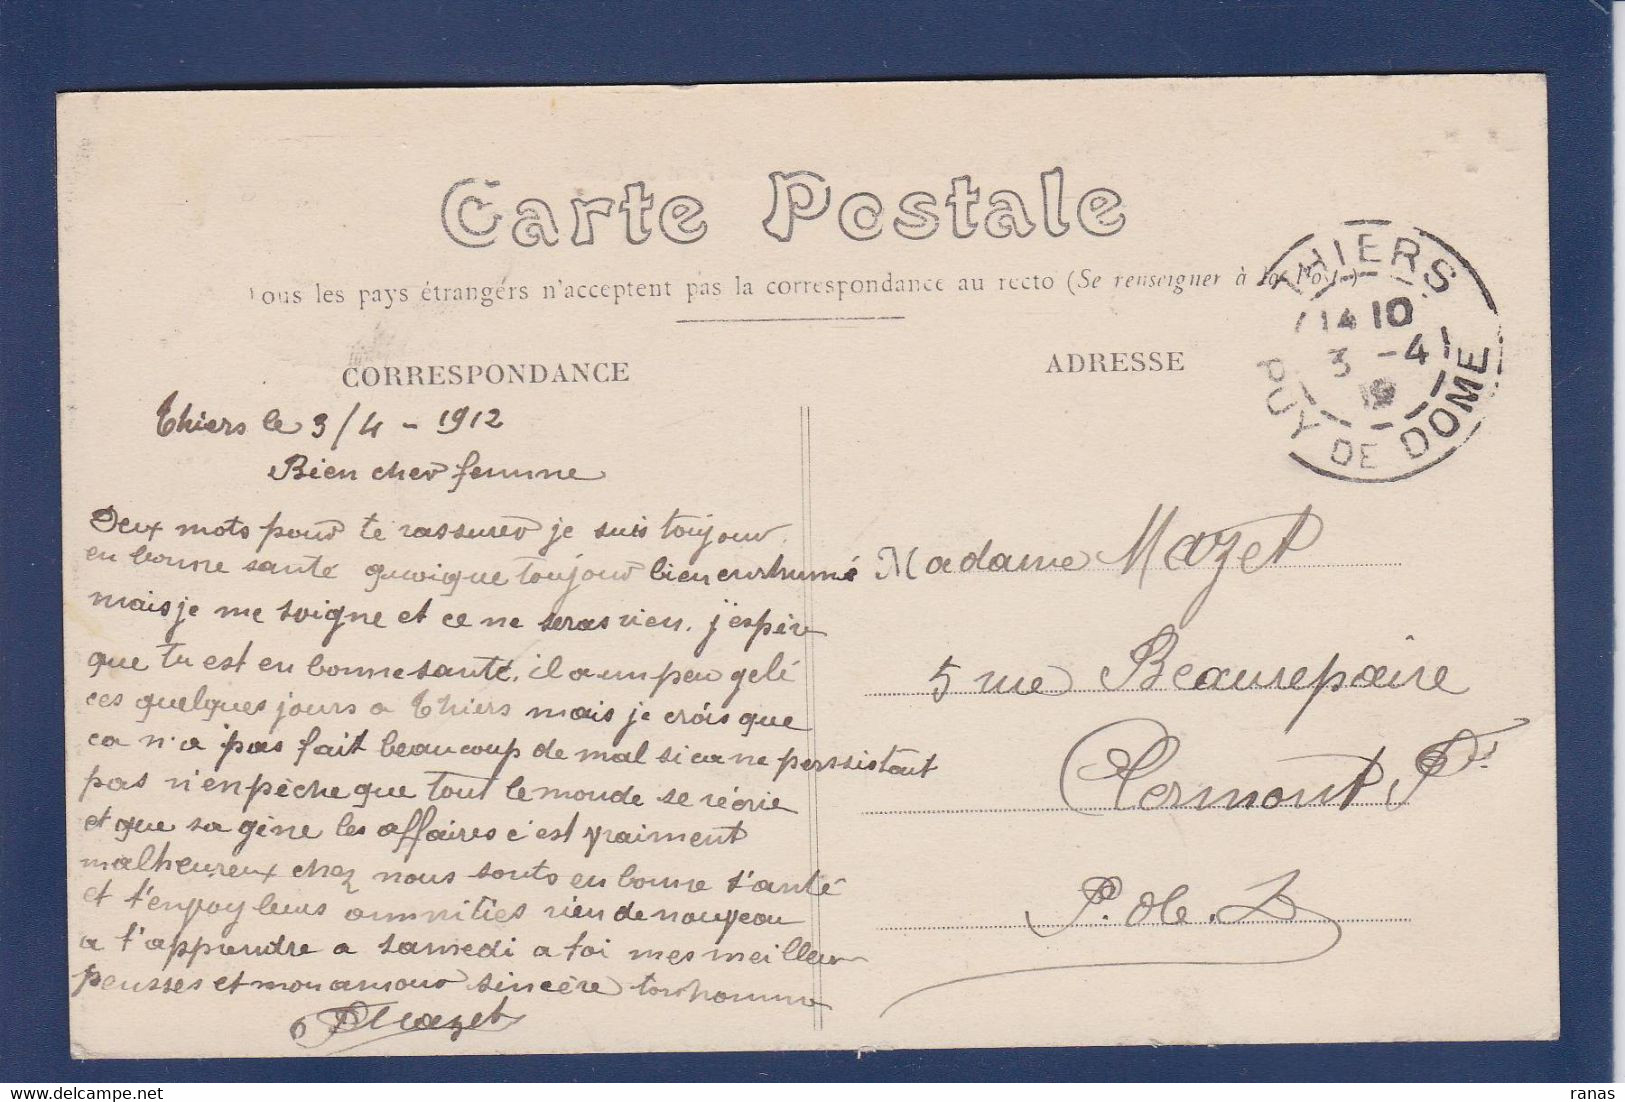 Carte Postale
Tous les pays étrangers n'acceptent pas la correspondance au recto (Se renseigner à la Poste)
CORRESPONDANCE
ADRESSE
THIERS
14 10
3 -4
PUY DE DOME
Thiers le 3/4 - 1912
Bien cher femme
Deux mots pour te rassurer je suis toujour
en bonne santé quoique toujour bien enrhumé
mais je me soigne et ce ne seras rien. j'espère
que tu est en bonne santé. il a un peu gelé
ces quelques jours a Thiers mais je crois que
ca n'a pas fait beaucoup de mal si ca ne perssistait
pas n'enpèche que tout le monde se récrie
et que sa gène les affaires c'est vraiment
malheureux chez nous sonts en bonne s'anté
et t'envoy leurs amnitiès rien de nouveau
a t'apprendre a samedi a toi mes meilleur
pensses et mon amour sincère ton homme
Mazet
Madame Mazet
5 rue Beaurepaire
Clermont Fd
P. de. D
ranas